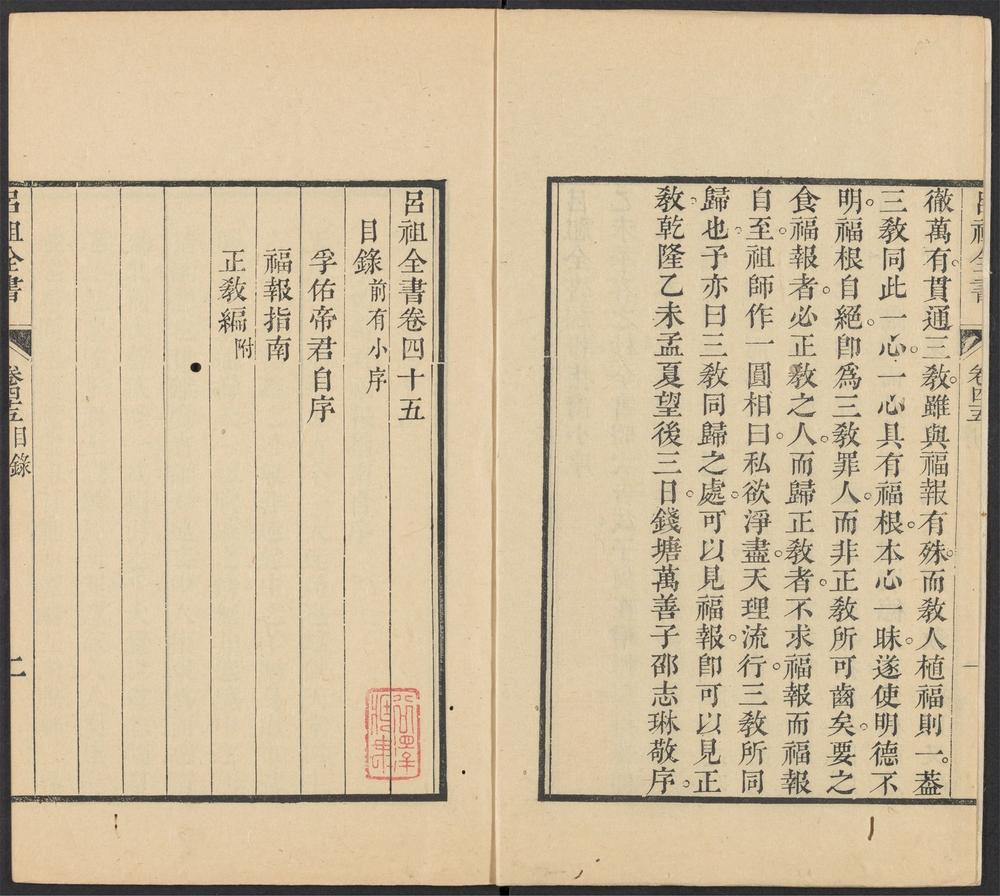 呂祖全書
卷四五
一
徹萬有貫通三教。雖與福報有殊。而教人植福則一。蓋
三教同此一心。一心具有福根。本心一昧。遂使明德不
明。福根自絕。卽爲三教罪人。而非正教所可齒矣。要之
食福報者。必正教之人。而歸正教者。不求福報而福報
自至。祖師作一圓相。曰私欲淨盡。天理流行。三教所同
歸也。予亦曰三教同歸之處。可以見福報。卽可以見正
教。乾隆乙未孟夏望後三日。錢塘萬善子邵志琳敬序。
呂祖全書卷四十五
目錄前有小序
孚佑帝君自序
福報指南
正教編附
呂祖全書
卷四五目錄
二